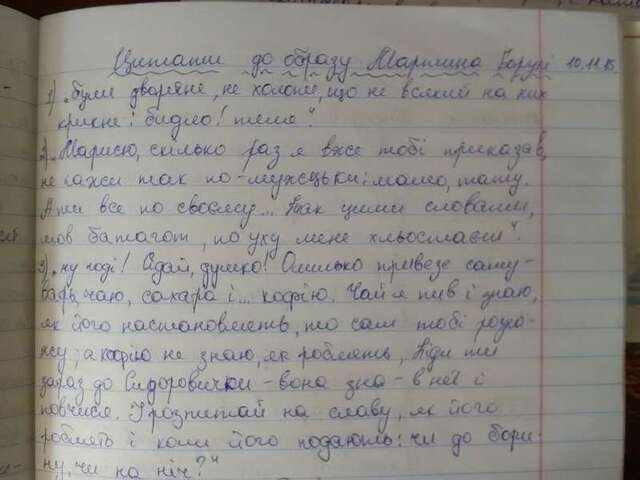 Цитати до образу Мартина Борулі 10.11.15.
1) „Були дворяне, не холопи, що не всякий на них
крикне: бидло! теля".
2) „Марисю, скілько раз я вже тобі приказав,
не кажи так по-мужецьки: мамо, тату.
А ти все по своєму... Так цими словами,
мов батогом, по уху мене хльостаєш".
3) „ну годі! Сідай, душко! Омелько привезе саму-
варь, чаю, сахарю і... кофію. Чай я пив і знаю,
як його настановлять, то сам тобі розка-
жу; а кофію не знаю, як роблять, Піди ти
зараз до Сидоровички - вона зна - в неї і
повчися. І розпитай на славу, як його
роблять і коли його подають: чи до борщ-
ну, чи на ніч?"